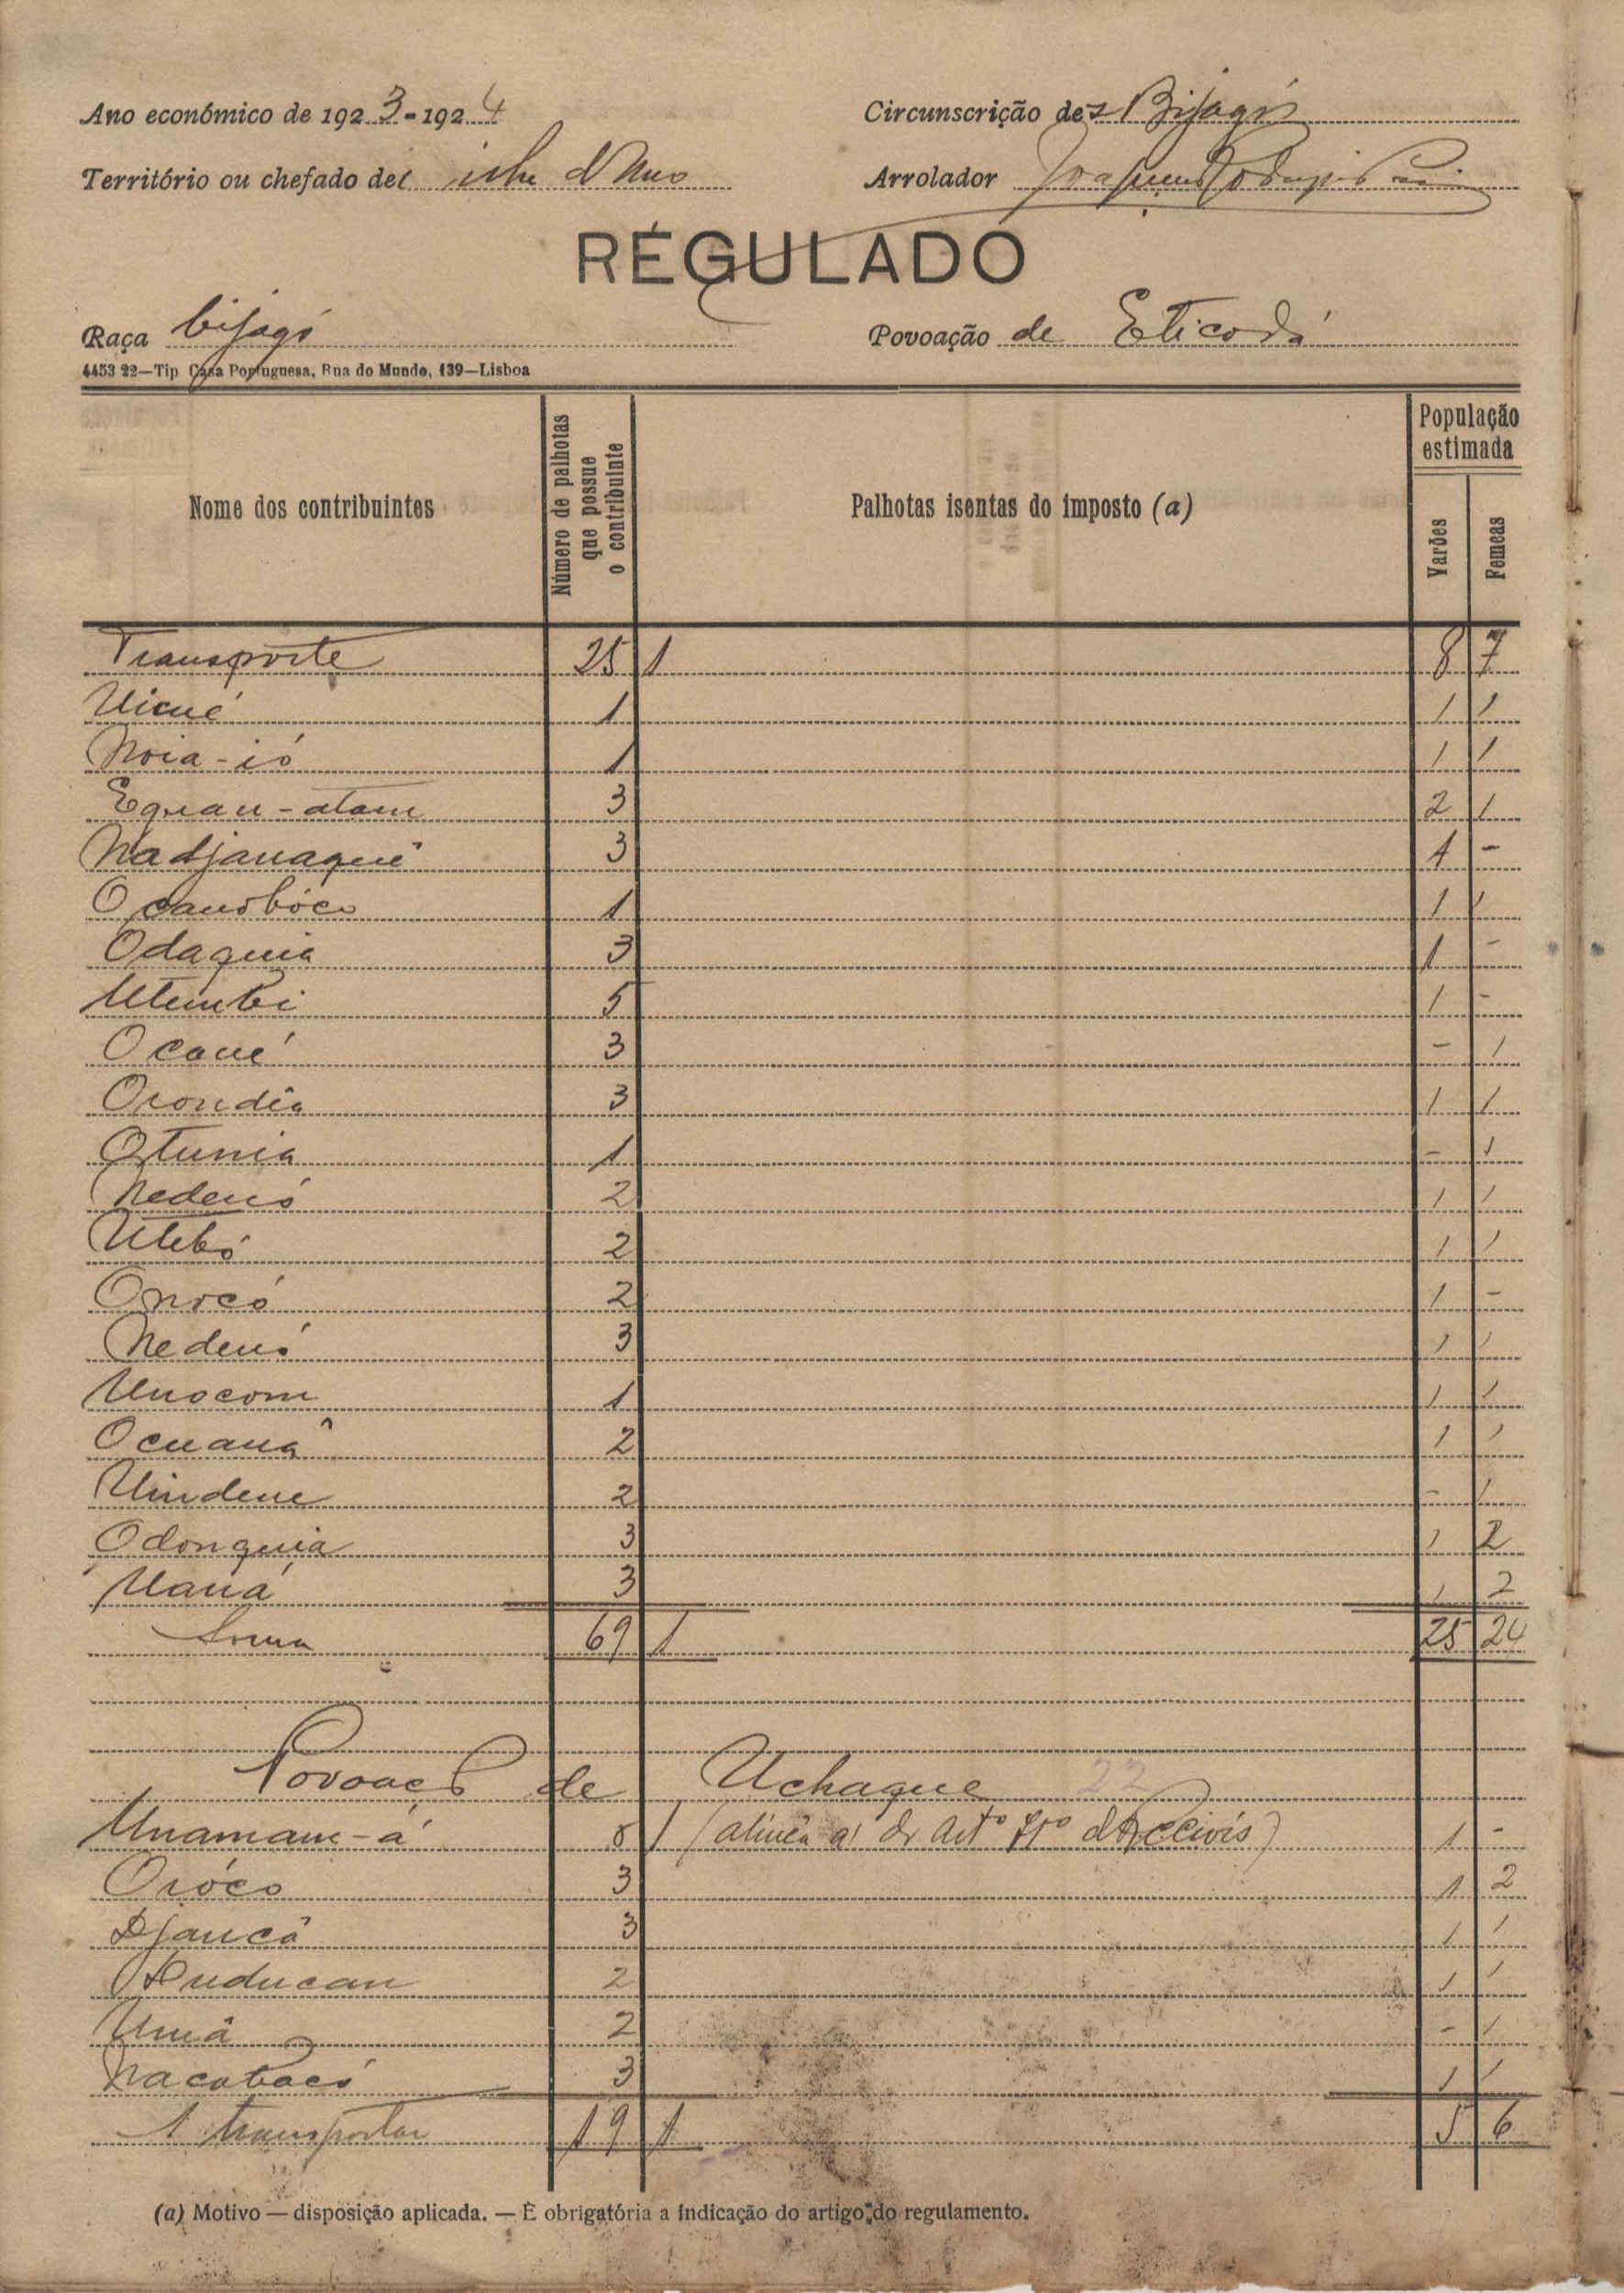 Ano económico de 1923-1924 Circunscrição de Bijagós
Território ou chefado de ilha d'Uno Arrolador Joaquim Rodrigues
REGULADO
Raça bijagó Povoação de Eticodá
4453 22—Tip Casa Portuguesa, Rua do Mundo, 139—Lisboa
Nome dos contribuintes Número de palhotas que possue o contribuinte Palhotas isentas do imposto (a) População estimada Varões Femeas
Transporte 25 1 8 7
Uicué 1 1 1
Noia-ió 1 1 1
Eguau-atam 3 2 1
Nadjanaquê 3 1 -
Ocanobóco 1 1 1
Odaquia 3 1 -
Utembi 5 1 -
Ocané 3 - 1
Orondia 3 1 1
Otunia 1 - 1
Nedenó 2 1 1
Utebó 2 1 1
Onocó 2 1 -
Nedenó 3 1 1
Unocom 1 1 1
Ocuanâ 2 1 1
Uindene 2 - 1
Odonquia 3 1 2
Uaná 3 1 2
Soma 69 1 25 24
Povoaçº de Uchaque 22
Unamam-á 6 1 (alinea a) do artº do R. Civis) 1 -
Oróco 3 1 2
Djancâ 3 1 1
Duducan 2 1 1
Umâ 2 - 1
Nacabacó 3 1 1
A transportar 19 1 5 6
(a) Motivo — disposição aplicada. — É obrigatória a indicação do artigo do regulamento.